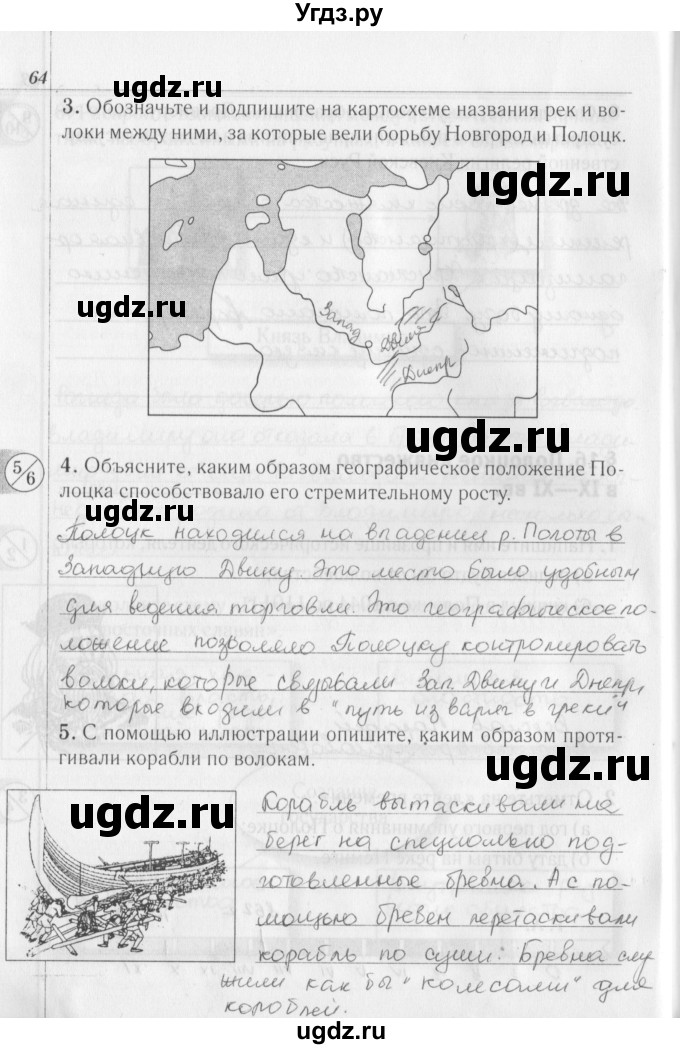 Угдз.ру
64
ugdz.ru
3. Обозначьте и подпишите на картосхеме названия рек и во-
локи между ними, за которые вели борьбу Новгород и Полоцк.
ugdz.ru
ugdz.ru
Запад
Двина
Днепр
ugdz.ru
5/6
4. Объясните, каким образом географическое положение По-
лоцка способствовало его стремительному росту.
ugdz.ru
Полоцк находился на впадении р. Полоты в
Западную Двину. Это место было удобным
для ведения торговли. Это географическое по-
ложение позволяло Полоцку контролировать
волоки, которые связывали Зап. Двину и Днепр,
которые входили в "путь из варяг в греки"
ugdz.ru
5. С помощью иллюстрации опишите, каким образом протя-
гивали корабли по волокам.
ugdz.ru
Корабль вытаскивали на
берег на специально под-
готовленные бревна. А с по-
мощью бревен перетаскивали
корабль по суши. Бревна слу
жили как бы "колесами" для
кораблей.
ugdz.ru
ugdz.ru